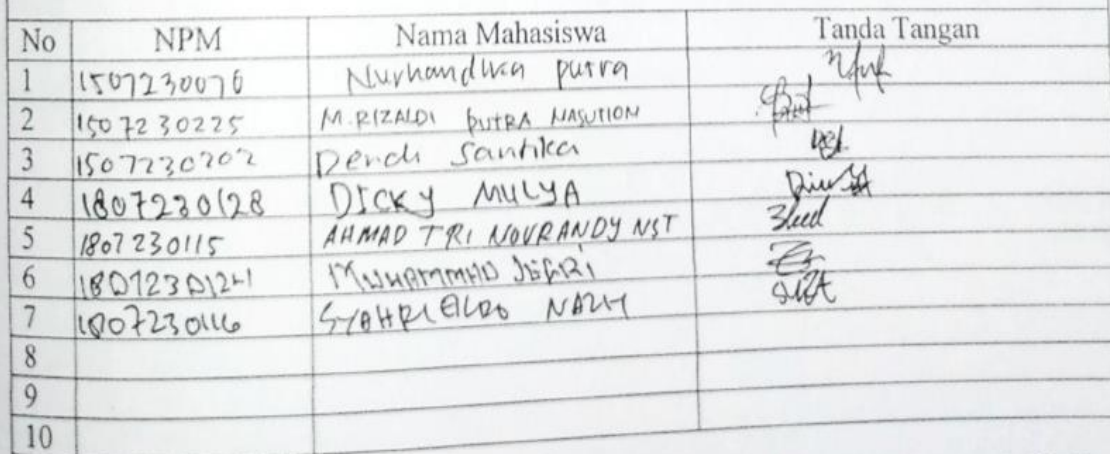 No NPM Nama Mahasiswa Tanda Tangan
1 1507230070 Nurhandika putra
2 1507230225 M.RIZALDI PUTRA NASUTION
3 1507230202 Dendi Santika
4 1807230128 DICKY MULYA
5 1807230115 AHMAD TRI NOVRANDY NST
6 1807230124 MUHAMMAD
7 1807230116
8
9
10